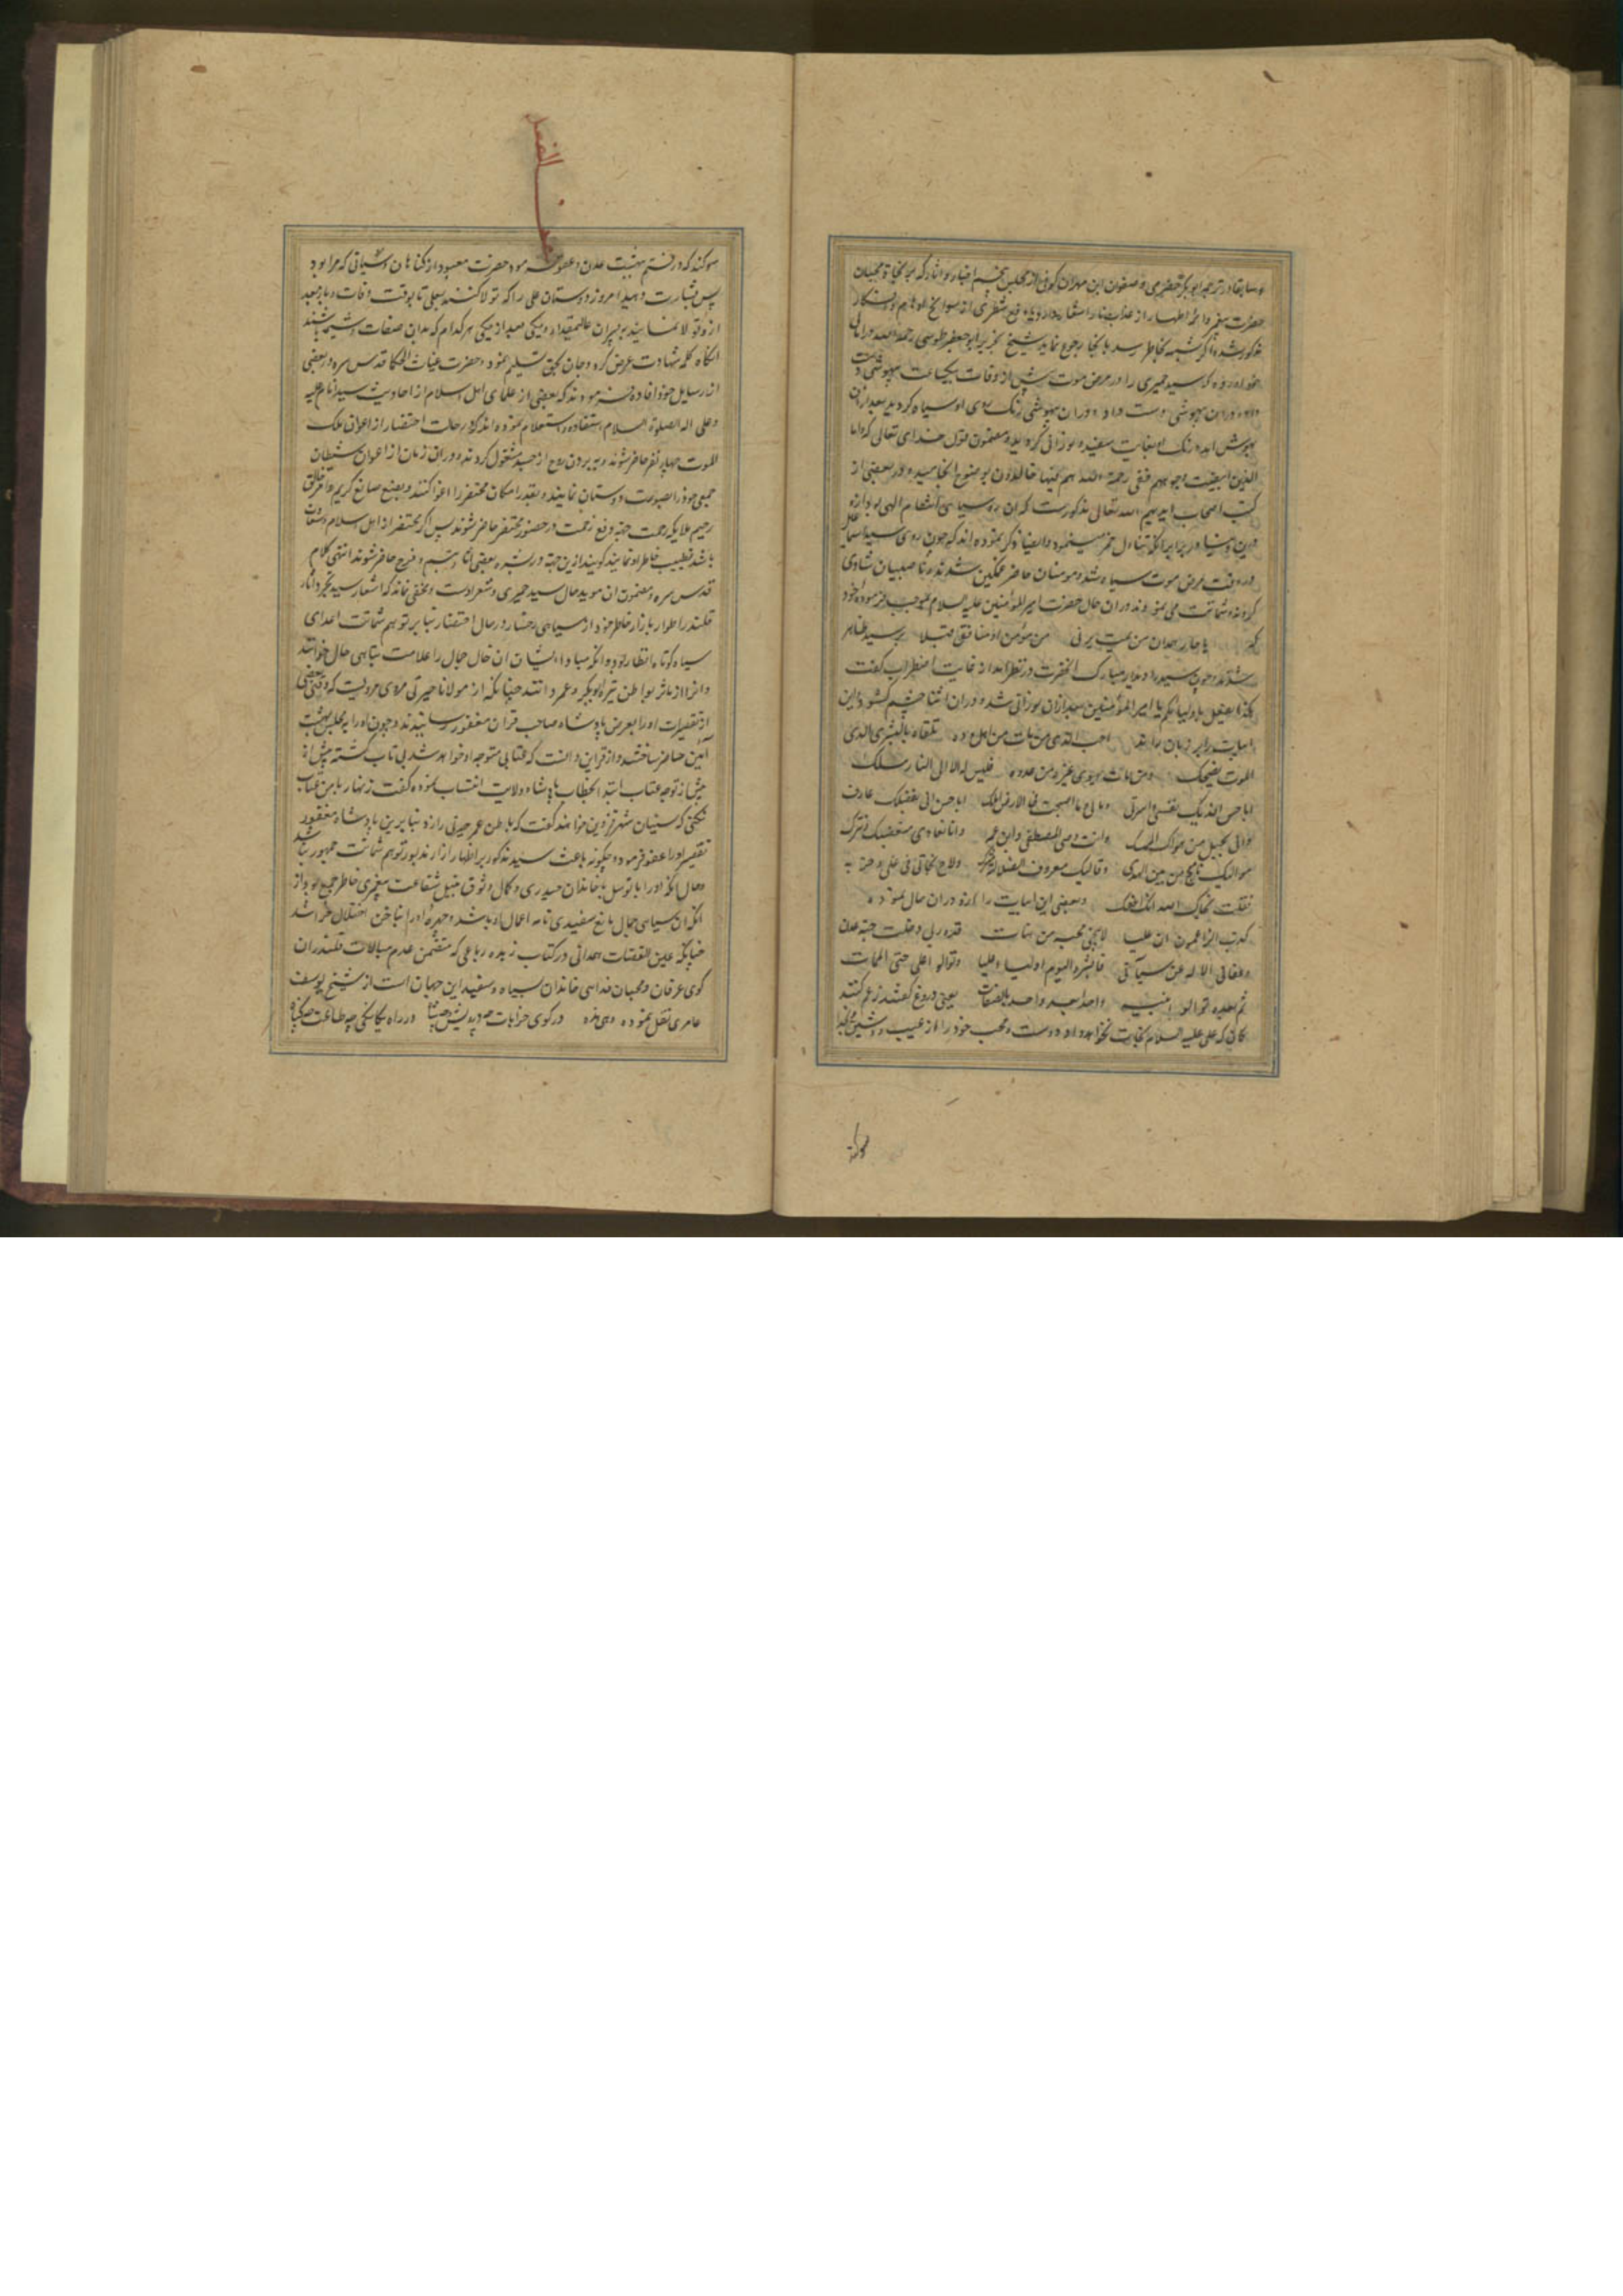 و سابقا در ترجمه ابو بکر حضرمی و صفوان ابن مهران کوفی از مجلس پنجم اخبار و آثار که
حضرت سقر و اظهار از عذاب نار
مذکور شد اگر شبهه بخاطر رسد بانجا رجوع نماید شیخ ابو جعفر طوسی رحمه الله در امالی
خود آورده که سید حمیری را در مرض موت پیش از وفات یکساعت بیهوشی
داد و در آن بیهوشی رنگ روی او سیاه گردید بعد از آن
بهوش آمد و رنگ او بغایت سفید و نورانی گردید و مضمون قول خدای تعالی که و اما
الذین ابیضت وجوههم ففی رحمة الله هم فیها خالدون بوضوح انجامید و در بعضی از
کتب اصحاب ایدهم الله تعالی مذکورست که آن سیاهی انتقام الهی بود از او
در دنیا در برابر آنکه تناول خمر مینمود و ایضا ذکر نموده اند که چون روی سید
در وقت مرض موت سیاه شد و مومنان حاضر غمگین شدند و ناصبیان شادی
کردند و شماتت می نمودند در آن حال حضرت امیر المؤمنین علیه السلام بموجب فرموده خود
که یا حار همدان من یمت یرنی من مؤمن او منافق قبلا بر سید ظاهر
شدند و چون سید را دیدار مبارک آنحضرت در نظر آمد از غایت اضطراب گفت
هکذا یفعل باولیائکم یا امیر المؤمنین بعد از آن نورانی شد و در آن اثنا چشم گشود و این
ابیات را بر زبان راند احب الذی من مات من اهل وده تلقاه بالبشری لدی
الموت یضحک و من مات یهوی غیره من عدوه فلیس له الا الی النار مسلک
ابا حسن افدیک نفسی و اسرتی و مالی و ما اصبحت فی الارض املک ابا حسن انی بفضلک عارف
و انی بحبل من هواک لممسک و انت وصی المصطفی و ابن عمه و انا نعادی مبغضیک و نترک
موالیک ناج مؤمن بین الهدی و قالیک معروف الضلالة مشرک و لاح لحانی فی علی و حزبه
فقلت لحاک الله انک اعفک و بعضی این ابیات را در آن حال نموده
کذب الزاعمون ان علیا لا ینجی محبه من هنات قد و ربی دخلت جنة عدن
و عفا لی الاله عن سیآتی فابشروا الیوم اولیاء علیا و توالوا علی حتی الممات
ثم من بعده توالوا بنیه واحدا بعد واحد بالصفات یعنی دروغ گفتند زعم کنند
گان که علی علیه السلام نجات نخواهد داد دوست و محب خود را از عیب و
سوکند
سوکند که در رفتم ببهشت عدن و عفو فرمود حضرت معبود از گناهان و سیئاتی که مرا بود
پس بشارت دهید امروز دوستان علی را که تولا کنند بعلی تا بوقت وفات و باز بعد
از او تولا نمایند به پسران عالیمقدار او یکی بعد از یکی هر کدام که بدان صفات
انگاه کلمه شهادت عرض کرد و جان بحق تسلیم نمود و حضرت غیاث الحکما قدس سره در بعضی
از رسایل خود افاده فرموده اند که بعضی از علمای اهل اسلام از احادیث سید انام علیه
و علی اله الصلوة و السلام استفاده و استعلام نموده اند که در حالت احتضار از اعوان ملک
الموت چهار نفر حاضر شوند و به بردن روح از جسد مشغول گردند و در آن زمان از اعوان شیطان
جمعی خود را بصورت دوستان نمایند و بقدر امکان محتضر را اغوا کنند و بصنع صانع کریم و خالق
رحیم ملایکه رحمت جهة دفع زحمت در حضور محتضر حاضر شوند پس اگر محتضر از اهل اسلام و سعادت
باشد تطییب خاطر او نمایند گویند ازین جهة در بشره بعضی آثار تبسم و فرح حاضر شود انتهی کلامه
قدس سره و مضمون آن موید حال سید حمیری و شعر اوست و مخفی نماند که اشعار سید
قلندر اطوار باز از خاطر خود از سیاهی رخسار در حال احتضار بنا بر توهم شماتت اعدای
سیاه کوتاه انظار بود و آنکه مبادا ایشان آن خال جمال را علامت تباهی حال خوانند
و آنرا از تأثر بواطن تیره ابوبکر و عمر دانند چنانکه از مولانا حیرتی مروی مرویست که وقتی بعضی
از تقصیرات او را بعرض پادشاه صاحب قران مغفور رسانیدند و چون او را بمجلس بهشت
آئین حاضر ساختند و از قراین دانست که عتابی متوجه او خواهد شد بی تاب گشته پیش از
توجه عتاب ابتدا بخطاب پادشاه ولایت انتساب نموده گفت زنهار با من عتاب
نکنی که سنیان شهر قزوین خواهند گفت که باطن عمر حیرتی را زد بنا برین پادشاه مغفور
تقصیر او را عفو فرمود و چگونه باعث سید مذکور بر اظهار آزار مذبور توهم شماتت جمهور باشد
و حال آنکه او را با توسل بخاندان حیدری و کمال وثوق بنیل شفاعت پیغمبری خاطر جمع بود از
آنکه آن سیاهی جمال مانع سفیدی نامه اعمال او باشد و چهره او را بناخن اختلال خراشد
چنانکه عین القضات همدانی در کتاب زبده رباعی که متضمن عدم مبالات قلندران
کوی عرفان و محبان فدایی خاندان بسیاه و سفید این جهان است از شیخ یوسف
عامری نقل نموده و هی هذه در کوی خرابات چه درویش و چه شاه در راه یگانگی چه طاعت چه گناه